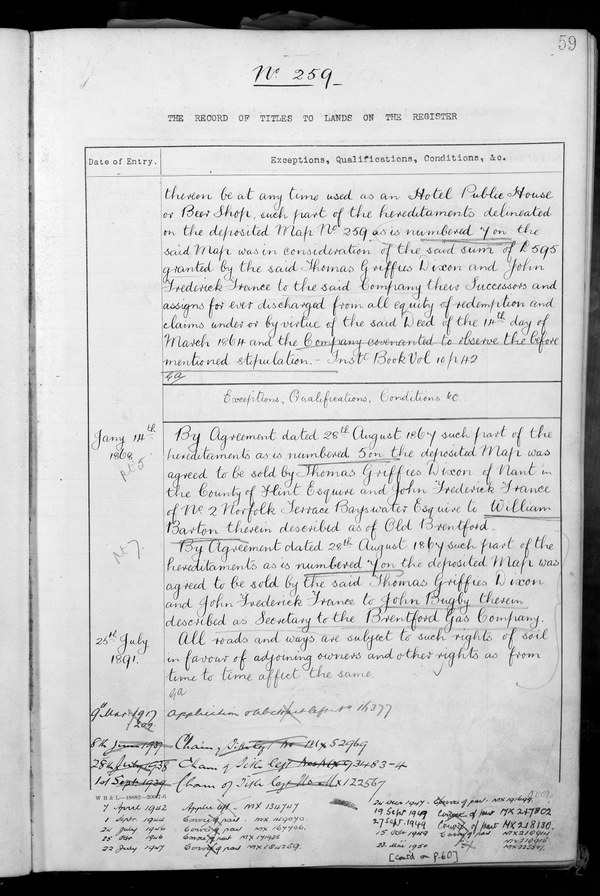 59
No 259
THE RECORD OF TITLES TO LANDS ON THE REGISTER
Date of Entry.
Exceptions, Qualifications, Conditions, &c.
thereon be at any time used as an Hotel Public House
or Beer Shop, such part of the hereditaments delineated
on the deposited Map No 259 as is numbered 7 on the
said Map was in consideration of the said sum of £595
granted by the said Thomas Griffies Dixon and John
Frederick France to the said Company their Successors and
assigns for ever discharged from all equity of redemption and
claims under or by virtue of the said Deed of the 14th day of
March 1864 and the Company covenanted to observe the before
mentioned stipulation. - Inst Book Vol 10 p 42
Exceptions, Qualifications, Conditions &c
Jany 14th
1868
By Agreement dated 28th August 1867 such part of the
hereditaments as is numbered 5 on the deposited Map was
agreed to be sold by Thomas Griffies Dixon of Nant in
the County of Flint Esquire and John Frederick France
of No 2 Norfolk Terrace Bayswater Esquire to William
Barton therein described as of Old Brentford
By Agreement dated 28th August 1867 such part of the
hereditaments as is numbered 7 on the deposited Map was
agreed to be sold by the said Thomas Griffies Dixon
and John Frederick France to John Bugby therein
described as Secretary to the Brentford Gas Company.
25th July
1891.
All roads and ways are subject to such rights of soil
in favour of adjoining owners and other rights as from
time to time affect the same.
9th Mar 1917
Application No 16377
8th June 1937 Chain of Title Cept No MX 52969
28th July 1938 Chain of Title Cept Nos MX 93483-4
1st Sept 1939 Chain of Title Cept No MX 122567
7 April 1942 MX 134747
1 Sept 1944
24 July 1946 part MX 167706.
22 July 1947 part MX 184259.
24 Dec 1947 part
19 Sept 1949 part MX 247802
27 Sept 1949 part MX 218130
[cont'd on p. 60]